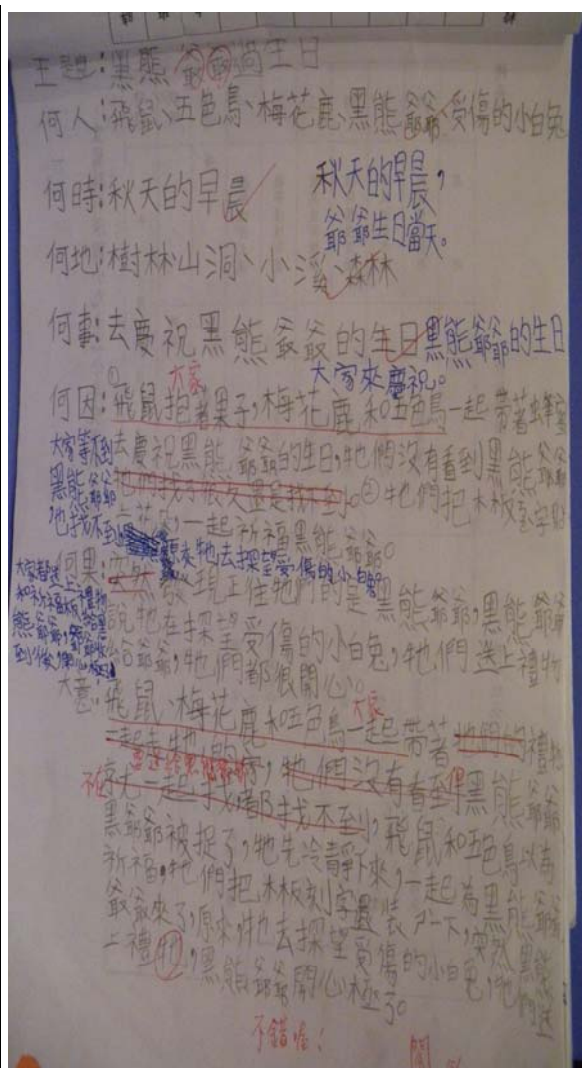 主題:黑熊爺爺過生日
何人:飛鼠、五色鳥、梅花鹿、黑熊爺爺、受傷的小白兔
何時:秋天的早晨
秋天的早晨,
爺爺生日當天。
何地:樹林山洞、小溪、森林
何事:去慶祝黑熊爺爺的生日
黑熊爺爺的生日
大家來慶祝。
大家
何因:①飛鼠抱著果子,梅花鹿和五色鳥一起帶著蜂蜜
去慶祝黑熊爺爺的生日,牠們沒有看到黑熊爺爺
牠們找了很久還是找不到。②牠們把木板
一起祈福黑熊爺爺。
大家等不到
黑熊爺爺
也找不到,
原來牠去探望受傷的小白兔。
何果:突然發現正往牠們的是黑熊爺爺,黑熊爺爺
說牠在探望受傷的小白兔,牠們送上禮物
給爺爺,牠們都很開心。
大家都送上禮物
大意:飛鼠、梅花鹿和五色鳥一起帶著牠們的禮物
大家
牠們沒有看到黑熊爺爺
一起找都找不到,飛鼠和五色鳥以為
黑爺爺被捉了,牠先冷靜下來,一起為黑熊爺爺
祈福,牠們把木板刻字 突然黑熊
爺爺來了,原來牠去探望受傷的小白兔,牠們送
上禮物,黑熊爺爺開心極了。
不錯喔!
閱